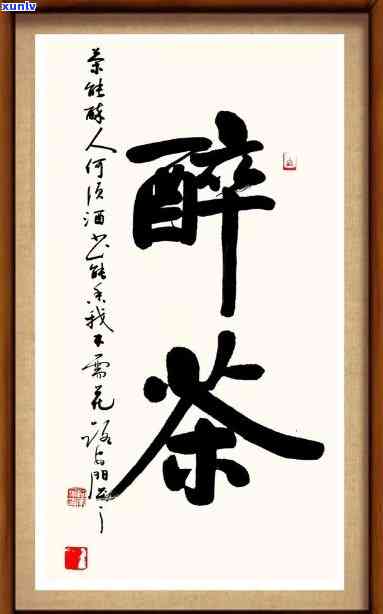 xunlv
醉茶
茶能醉人何须酒书能香我不需花